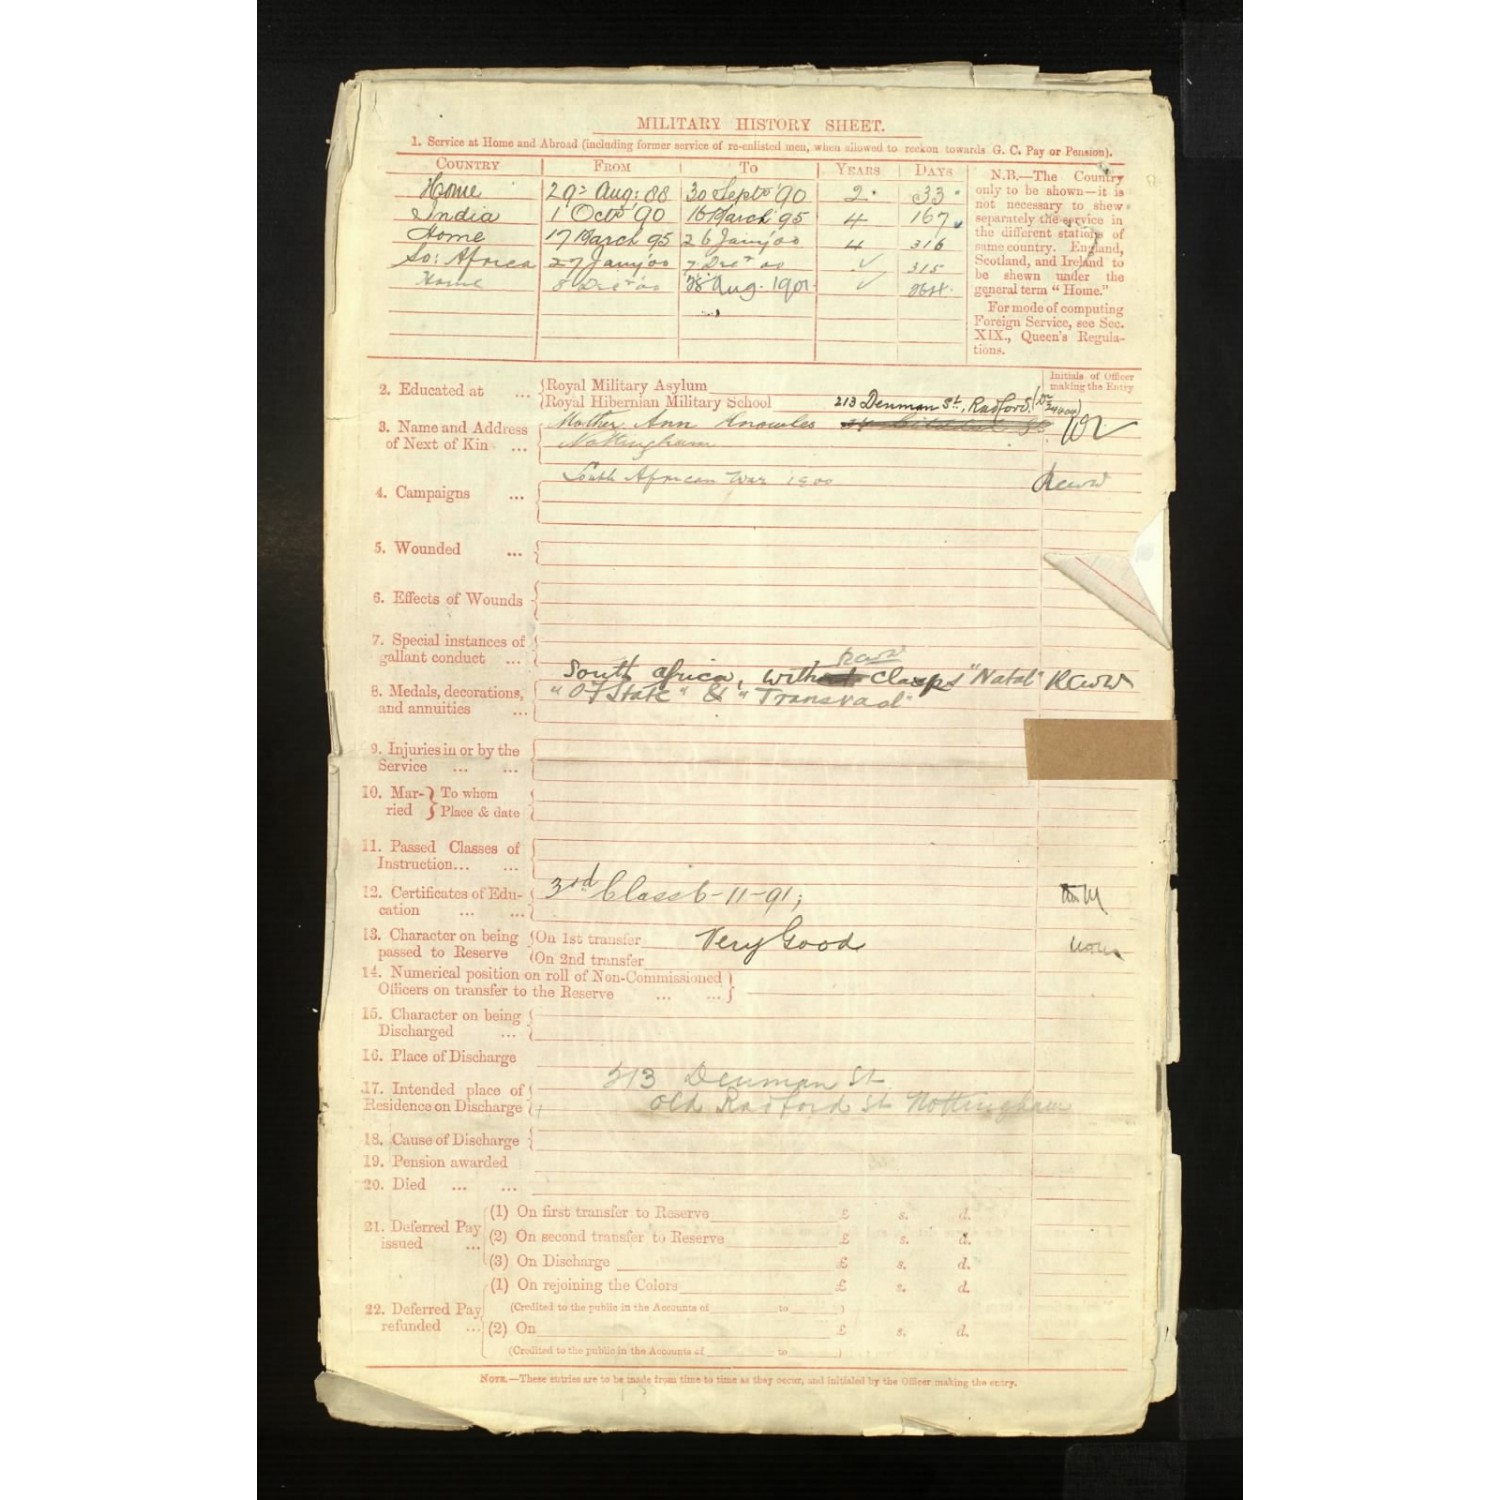 MILITARY HISTORY SHEET.
1. Service at Home and Abroad (including former service of re-enlisted men, when allowed to reckon towards G. C. Pay or Pension).
COUNTRY FROM TO YEARS DAYS
Home 29 Aug: 88 30 Septr '90 2 33
India 1 Octr '90 16 March 95 4 167
Home 17 March 95 26 Jany '00 4 316
So: Africa 27 Jany '00 7 Decr 00 ✓ 315
Home 8 Decr '00 28 Aug. 1901 ✓ 264
N.B.—The Country
only to be shown—it is
not necessary to shew
separately the service in
the different stations of
same country. England,
Scotland, and Ireland to
be shewn under the
general term "Home."
For mode of computing
Foreign Service, see Sec.
XIX., Queen's Regula-
tions.
Initials of Officer
making the Entry
2. Educated at ... Royal Military Asylum
Royal Hibernian Military School
213 Denman St., Radford,
3. Name and Address
of Next of Kin ...
Mother Ann Knowles
Nottingham
4. Campaigns ... South African War 1900 RCWW
5. Wounded ...
6. Effects of Wounds
7. Special instances of
gallant conduct ...
8. Medals, decorations,
and annuities ...
South Africa, with Clasps "Natal" RCWW
"OF State" & "Transvaal"
9. Injuries in or by the
Service ... ...
10. Mar-} To whom
ried } Place & date
11. Passed Classes of
Instruction... ...
12. Certificates of Edu-
cation ... ...
3rd Class 6-11-91;
13. Character on being
passed to Reserve
On 1st transfer Very Good
On 2nd transfer
14. Numerical position on roll of Non-Commissioned
Officers on transfer to the Reserve ... ...
15. Character on being
Discharged ...
16. Place of Discharge
17. Intended place of
Residence on Discharge
213 Denman St
Old Radford St Nottingham
18. Cause of Discharge
19. Pension awarded
20. Died ... ...
21. Deferred Pay
issued ...
(1) On first transfer to Reserve £ s. d.
(2) On second transfer to Reserve £ s. d.
(3) On Discharge £ s. d.
22. Deferred Pay
refunded ...
(1) On rejoining the Colors £ s. d.
(Credited to the public in the Accounts of to )
(2) On £ s. d.
(Credited to the public in the Accounts of to )
NOTE.—These entries are to be made from time to time as they occur, and initialed by the Officer making the entry.